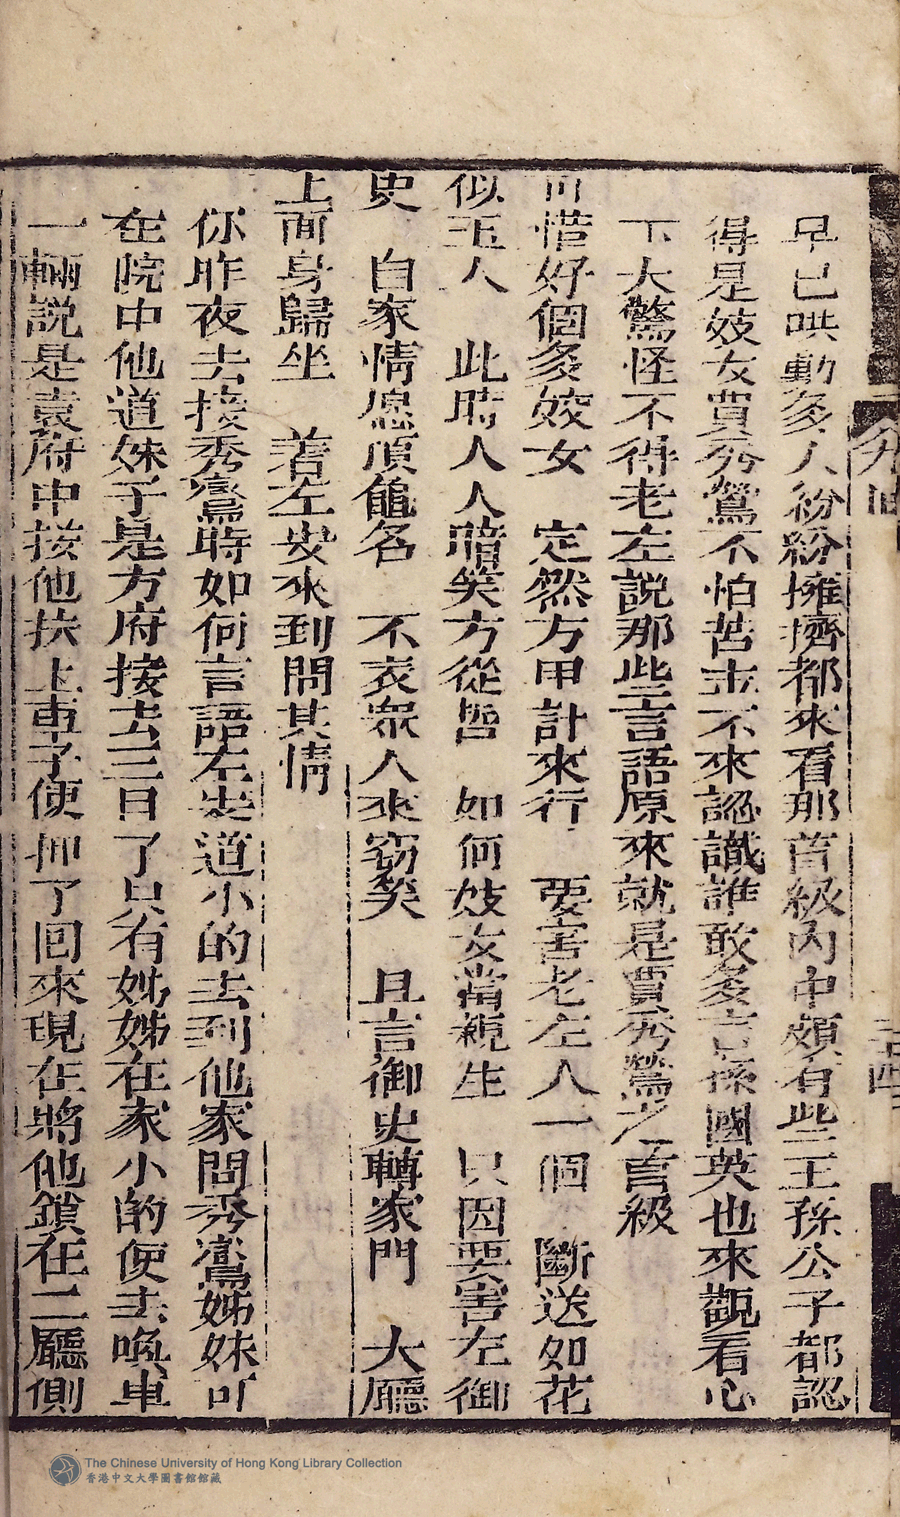 早已哄動多人紛紛擁擠都來看那首級內中頗有些王孫公子都認
得是妓女賈秀鶯不怕苦主不來認識誰敢多言孫國英也來觀看心
下大驚怪不得老左說那些言語原來就是賈秀鶯之首級
可惜好個多姣女 定然方甲計來行 要害老左人一個 斷送如花
似玉人 此時人人暗笑方從哲 如何妓女當親生 只因要害左御
史 自家情愿頂龜名 不表眾人來竊笑 且言御史轉家門 大廳
上面身歸坐 着左安來到問其情
你昨夜去接秀鸞時如何言語左安道小的去到他家問秀鸞姊妹可
在院中他道妹子是方府接去三日了只有姊姊在家小的便去喚車
一輛說是袁府中接他扶上車子便押了回來現在將他鎖在二廳側
The Chinese University of Hong Kong Library Collection
香港中文大學圖書館館藏